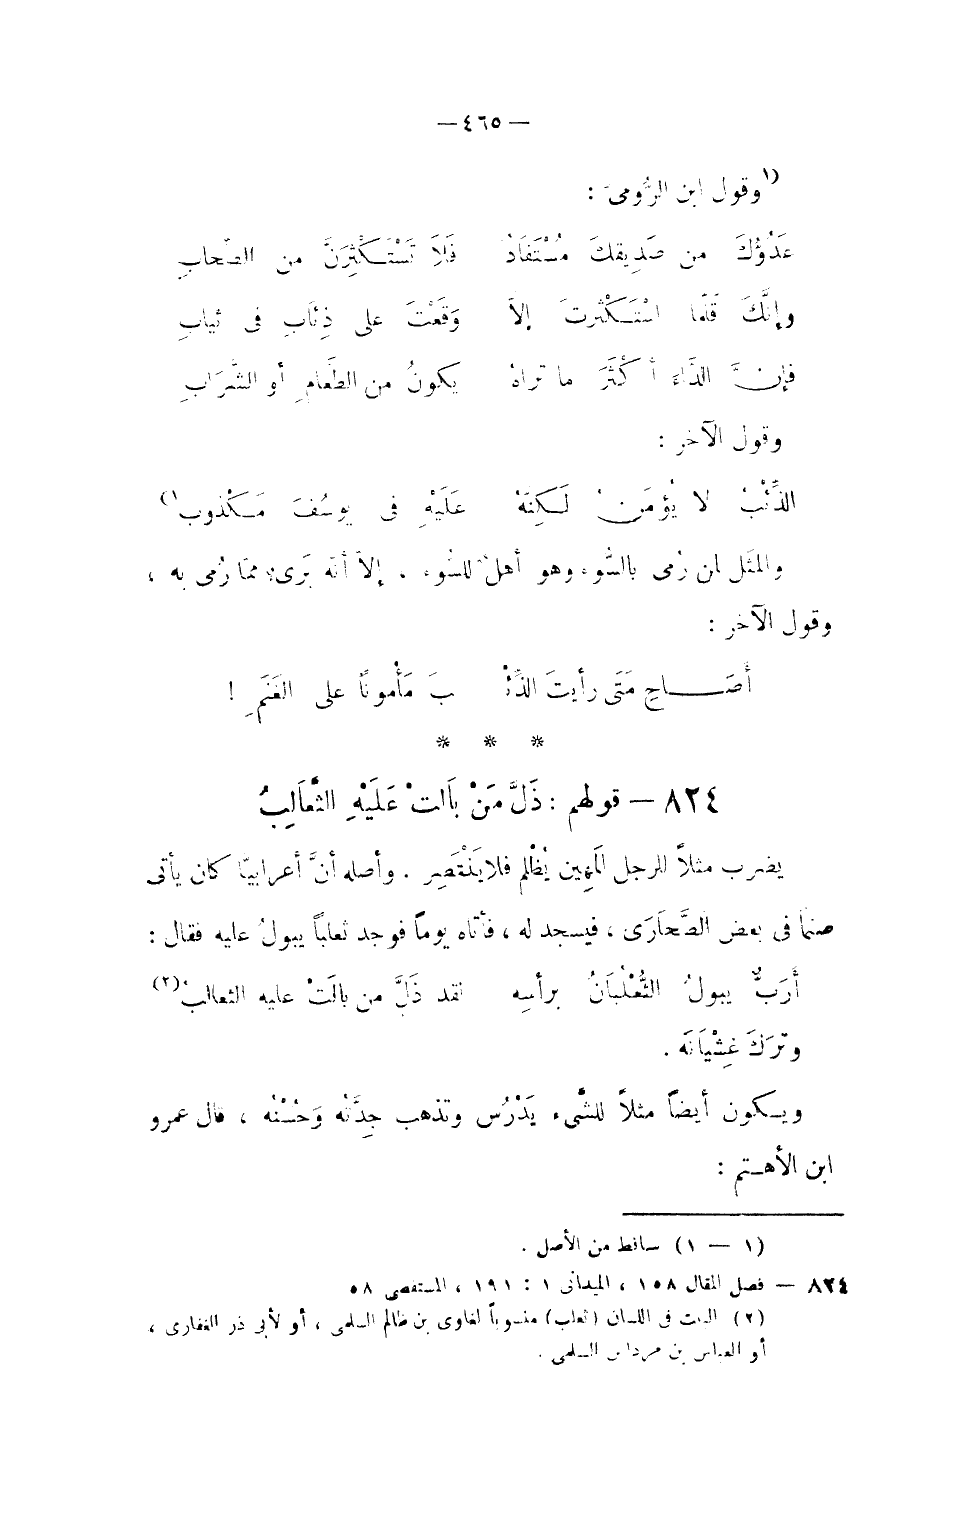 — ٤٦٥ —
(١وقول ابن الرُّومىّ :
عَدُوُّكَ من صَدِيقكَ مُسْتَفَادُ فَلاَ تَسْتَـكْثِرَنَّ من الصِّحابِ
وإنَّكَ قَلَّما اسْتَـكْثرتَ إلاَّ وَقَعْتَ على ذِئَابٍ فى ثيابِ
فإنـَّ الدَّاءَ أَكْثَرَ ما تراهُ يكونُ من الطَّعامِ أو الشَّرَابِ
وقول الآخر :
الذِّئْبُ لا يُؤمَنُ لَـكِنَّهُ عَلَيْهِ فى يوسُفَ مَـكْذوب١)
والمثَل لمن رُمى بالسُّوء وهو أهلٌ للسُّوء . إلاَّ أنّه بَرىء ممّا رُمى به ،
وقول الآخر :
أَصَـــــاحِ مَتَى رأيتَ الذِّئْـ ـبَ مَأْموناً على الغَنَمِ !
* * *
٨٢٤ — قولهم : ذَلَّ مَنْ بَالتْ عَلَيْهِ الثَّعَالِبُ
يضرب مثلاً للرجل المَهِين يُظْلم فلا يَنْتَصِر . وأصله أنَّ أعرابيًّا كان يأتى
صنماً فى بعض الصَّحَارَى ، فيسجد له ، فأتاه يوماً فوجد ثعلباً يبولُ عليه فقال :
أَرَبٌّ يبولُ الثُّعْلُبَانُ برأسِه لقد ذَلَّ من بالَتْ عليه الثعالبُ(٢)
وتَرَكَ غِشْيَانَه .
ويـكون أيضاً مثلاً للشَّىء يَدْرُس وتذهب جِدَّتُه وَحُسْنُه ، قال عمرو
ابن الأهـتم :
(١ — ١) ساقط من الأصل .
٨٢٤ — فصل المقال ١٥٨ ، الميدانى ١ : ١٩١ ، المستقصى ٥٨
(٢) البيت فى اللسان (ثعلب) منسوباً لغاوى بن ظالم السلمى ، أو لأبى ذر الغفارى ،
أو العباس بن مرداس السلمى .